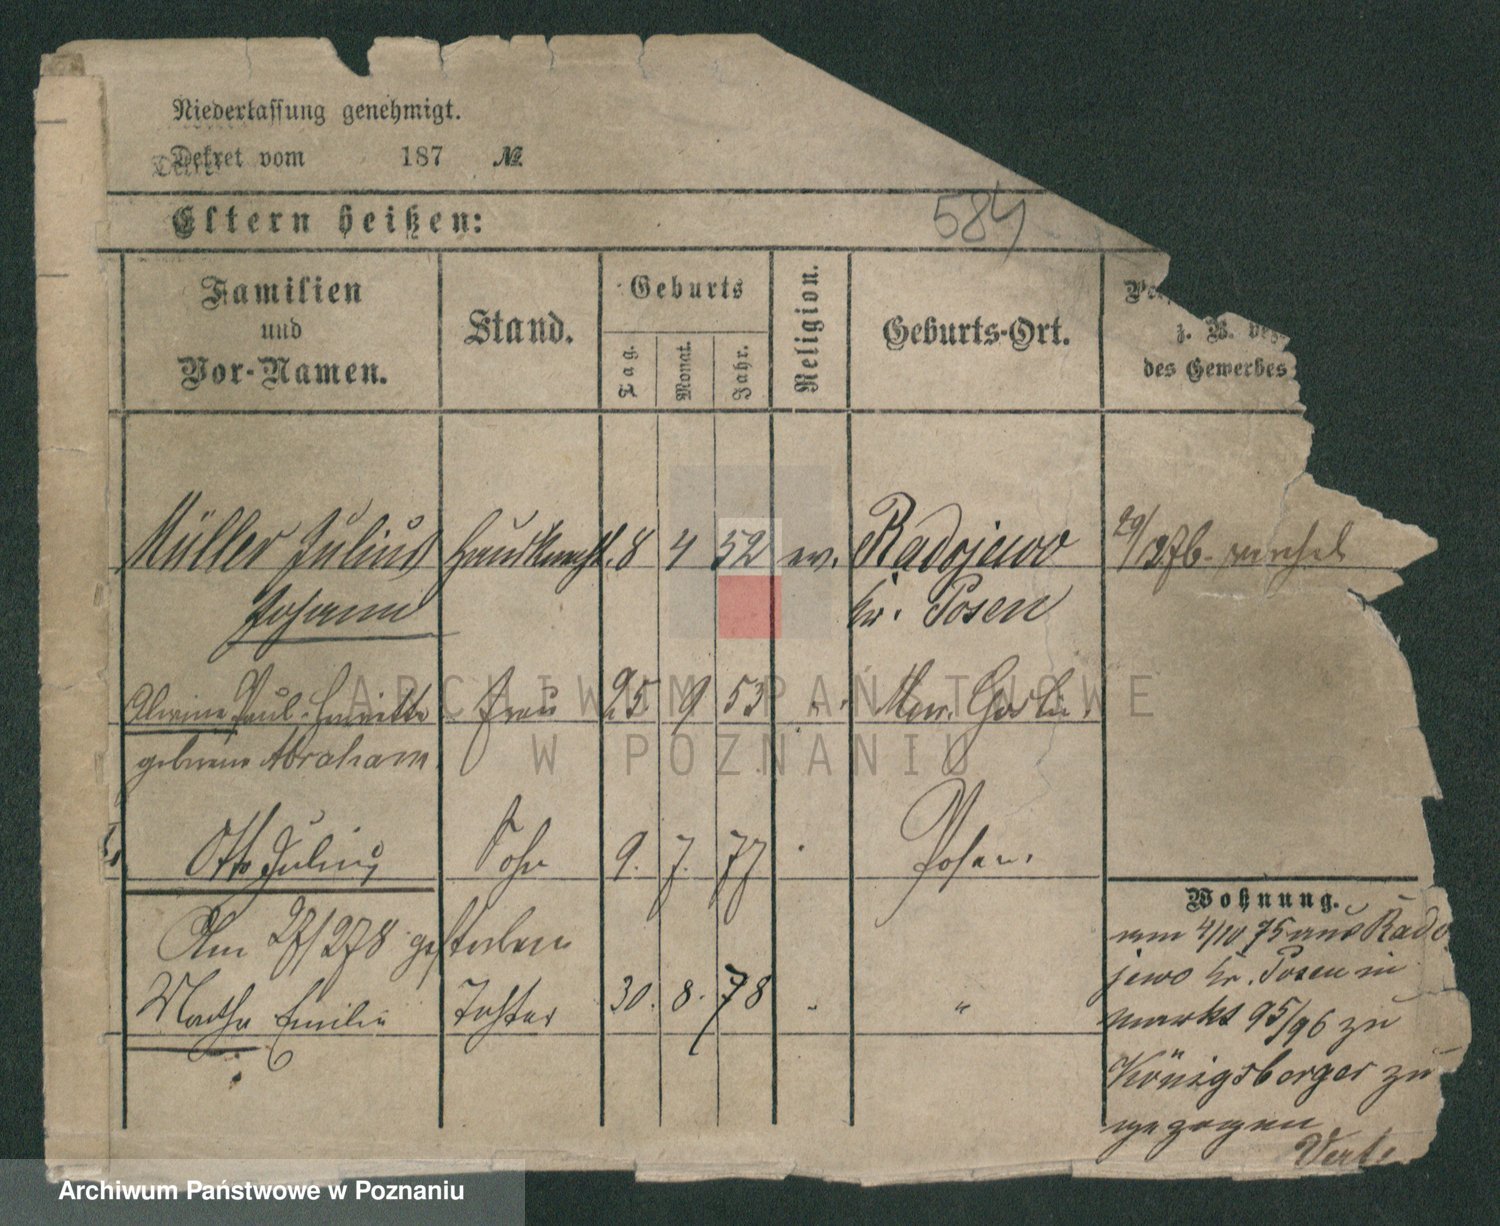 Niederlassung genehmigt.
Dekret vom 187 №
Eltern heißen:
584
Familien und Vor-Namen.
Stand.
Geburts
Tag.
Monat.
Jahr.
Religion.
Geburts-Ort.
z. B.
des Gewerbes
Müller Julius Hausknecht. 8 4 52 ev. Radojewo
Johann Kr. Posen
Alwine Paul. Henriette Frau 25 9 53 " Mur. Goslin.
geborene Abraham.
Otto Julius Sohn 9. 7. 77 " Posen.
Am 27/2 78 gestorben
Martha Emilie Tochter 30. 8. 78 " "
Wohnung.
am 4/10 75 aus Rado
jewo Kr. Posen in
Markt 95/96 zu
Königsberger zu
gezogen
ARCHIWUM PAŃSTWOWE
W POZNANIU
Archiwum Państwowe w Poznaniu